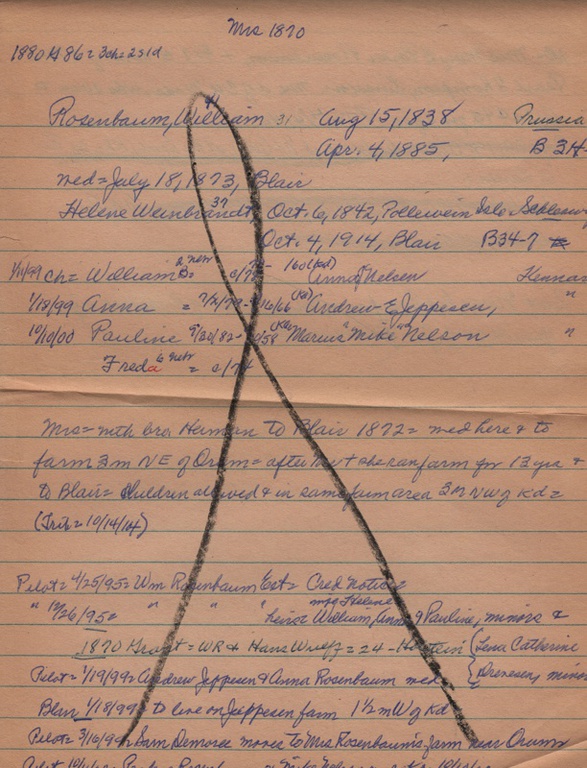 Mrs 1870
1880 A 86 = 3ch = 2 sld
Rosenbaum, William 31 Aug 15, 1838 Prussia
Apr. 4, 1885, B 34-
med = July 18, 1873, Blair
Helene Weinbrandt 37 Oct. 6, 1842, Pollewein Isle, Schlesw
Oct. 4, 1914, Blair B34-7
1/11/99 ch = William B. 2 Nebr c/7 160 (Kd) Anna Nelsen Kennar
1/18/99 Anna = 7/2/79 - 16/66 (Kd) Andrew E Jeppesen, "
10/10/00 Pauline 9/30/82 - /58 (Kd) Marius "Mike" Nelson "
Freda 6 Nebr = c/74
Mrs = with bro Herman to Blair 1872 = med here & to
farm 3m NE of Orum = after his + she ran farm for 13 yrs &
to Blair = children allowed & in same farm area 3m NW of Kd =
(Trib = 10/14/14)
Pilot = 4/25/95 = Wm Rosenbaum Est = Cred notice
" 12/26/95 = " " " mge Helene
heirs William, Anna & Pauline, minors &
1870 Grant = WR & Hans Wulff = 24 - Holstein (Lena Catherine
Pilot = 1/19/99 = Andrew Jeppesen & Anna Rosenbaum med { Sorensen, minor
Blair 1/18/99 to live on Jeppesen farm 1 1/2 m W of Kd
Pilot = 3/16/99 = Sam Demoree moves to Mrs Rosenbaum's farm near Orum